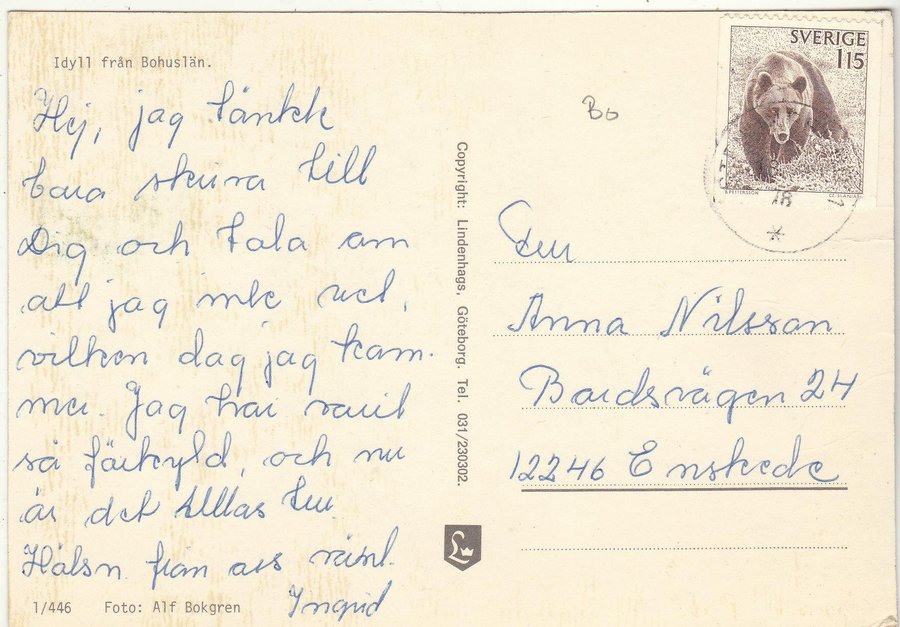 Idyll från Bohuslän.
Hej, jag tänkte
bara skriva till
Dig och tala om
att jag inte vet,
vilken dag jag kom-
mer. Jag har varit
så förkyld, och nu
är det tur
Hälsn. från oss
Ingrid
1/446 Foto: Alf Bokgren
Copyright: Lindenhags, Göteborg. Tel. 031/230302.
Bo
SVERIGE
1 15
78
Fru
Anna Nilsson
Bardsvägen 24
12246 Enskede